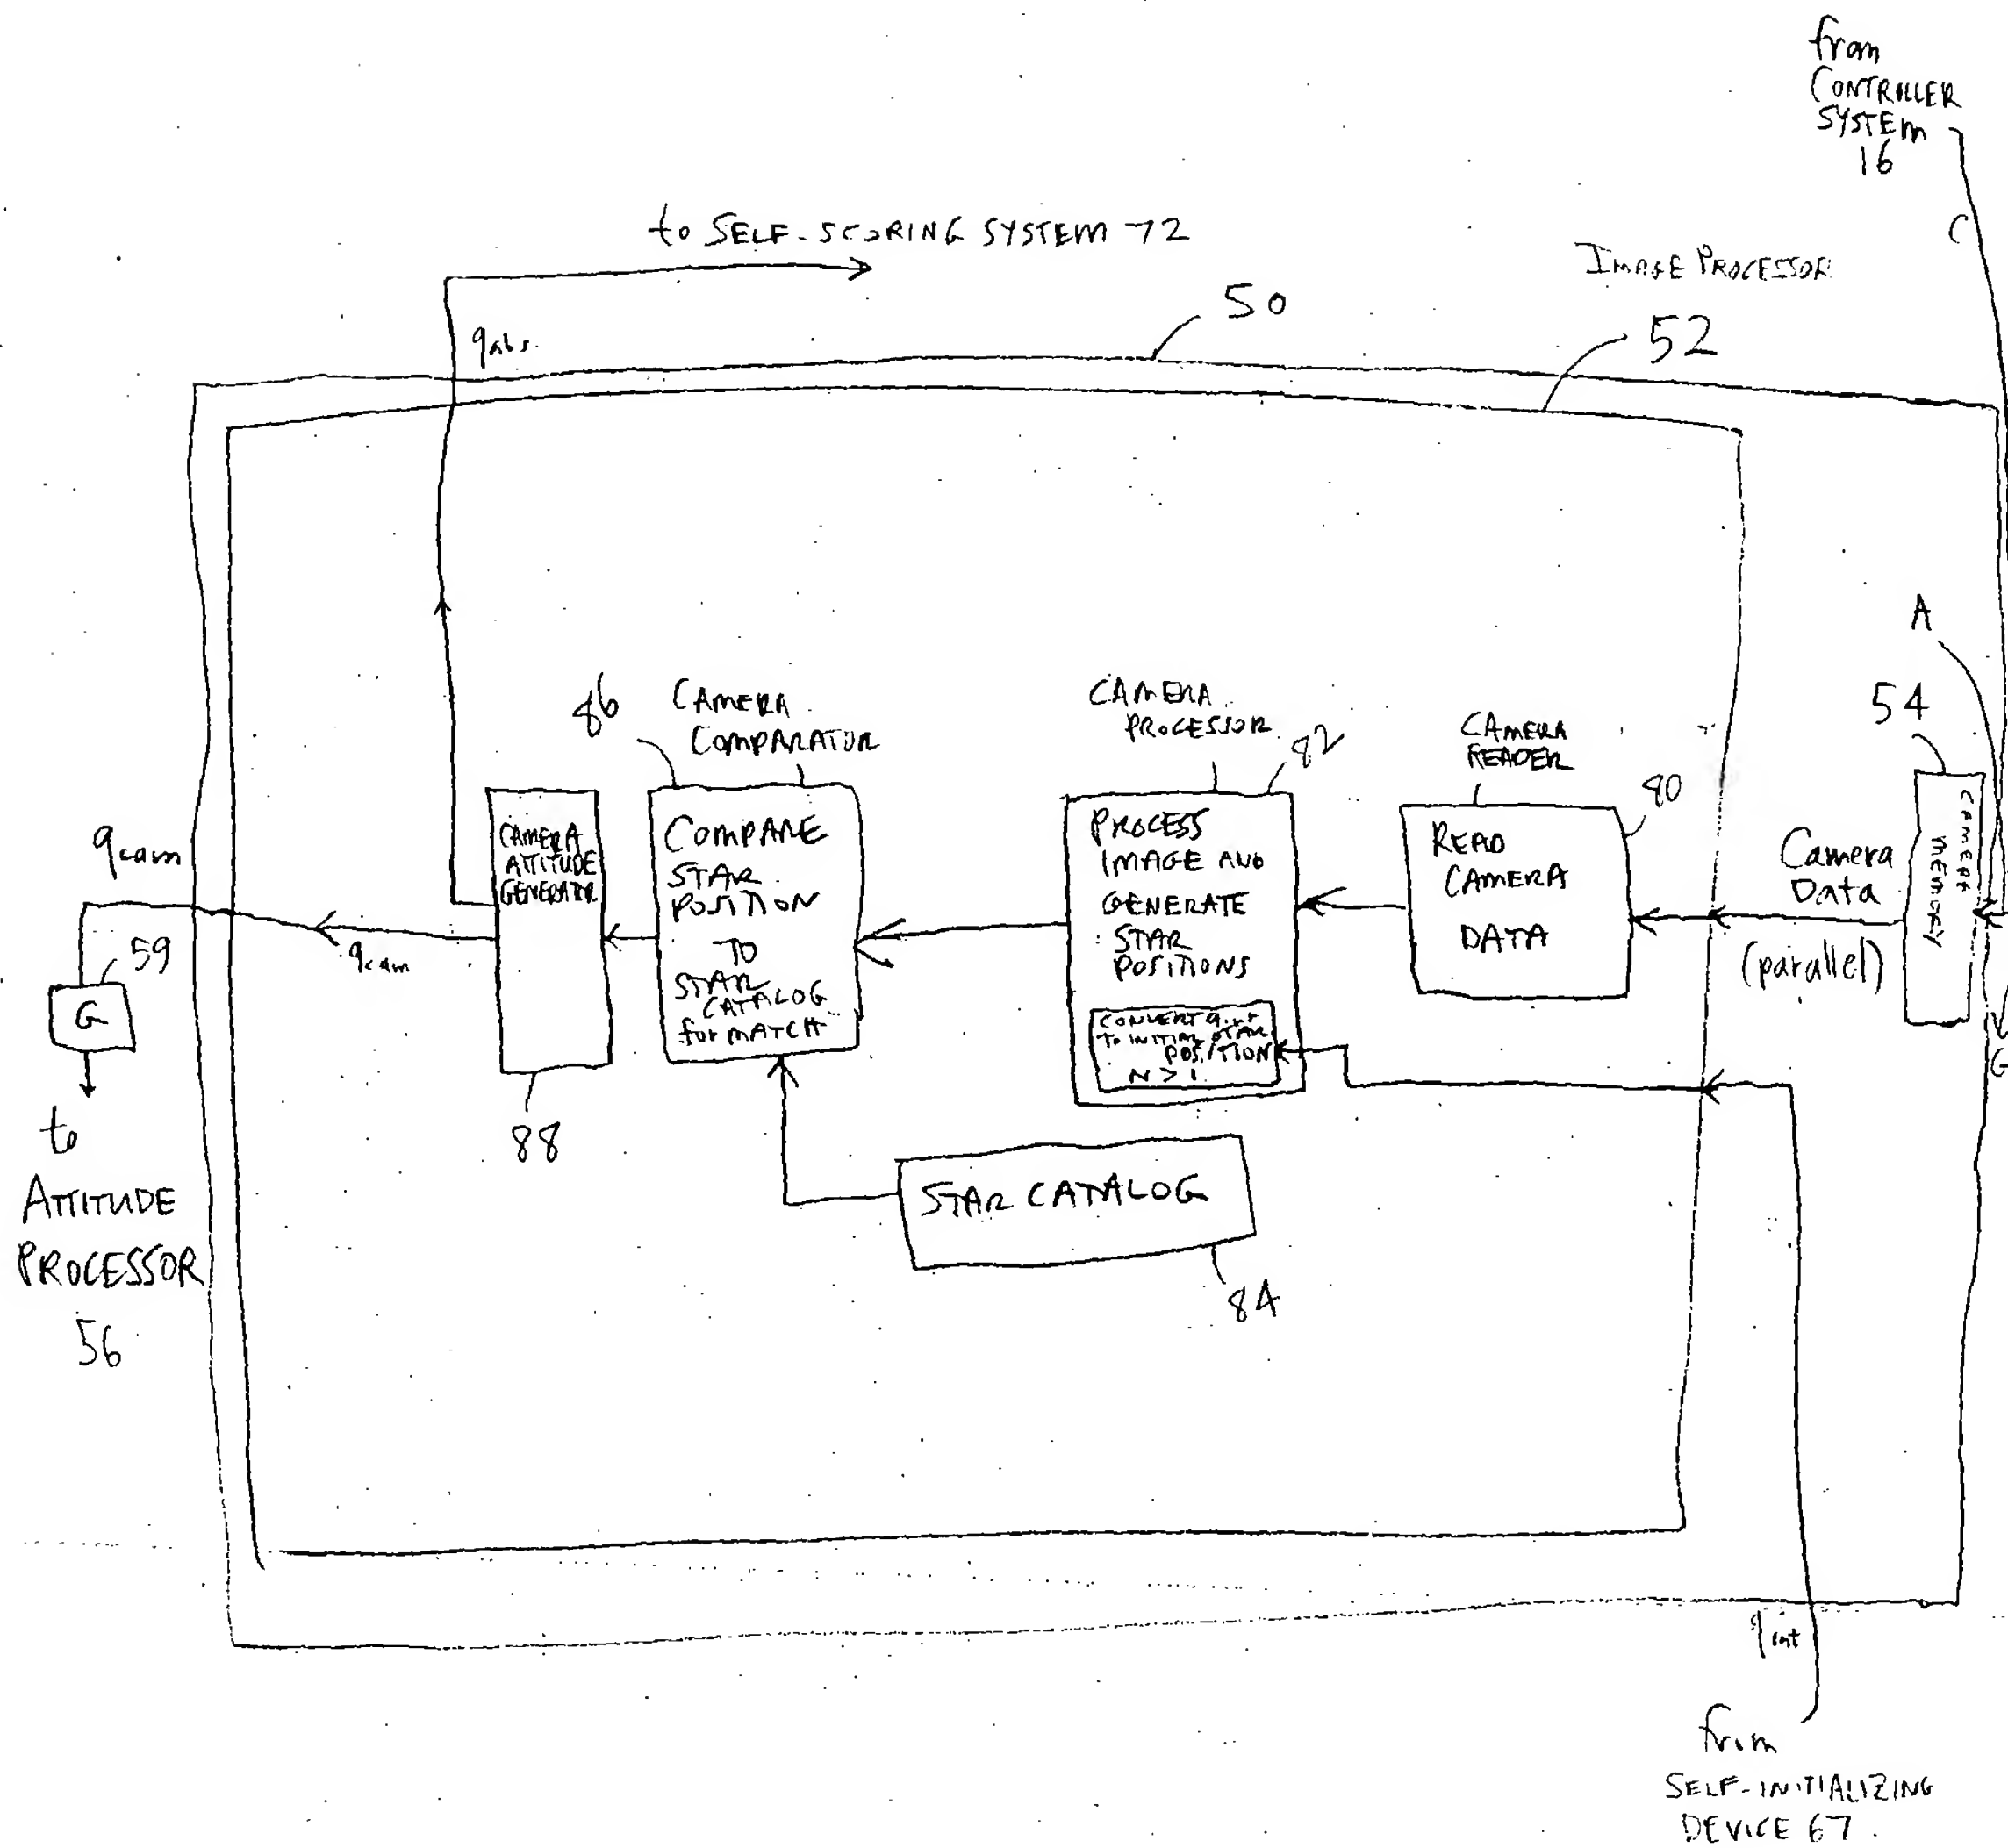 from
CONTROLLER
SYSTEM
16
C
to SELF-SCORING SYSTEM 72
IMAGE PROCESSOR
50
52
qabs.
A
54
CAMERA
MEMORY
86
CAMERA
COMPARATOR
CAMERA
PROCESSOR
82
CAMERA
READER
80
CAMERA
ATTITUDE
GENERATOR
COMPARE
STAR
POSITION
TO
STAR
CATALOG
for MATCH
PROCESS
IMAGE AND
GENERATE
STAR
POSITIONS
CONVERT
TO INITIAL STAR
POSITION
N > 1
READ
CAMERA
DATA
Camera
Data
(parallel)
G
qcam
qcam
59
G
to
ATTITUDE
PROCESSOR
56
88
STAR CATALOG
84
qint
from
SELF-INITIALIZING
DEVICE 67.